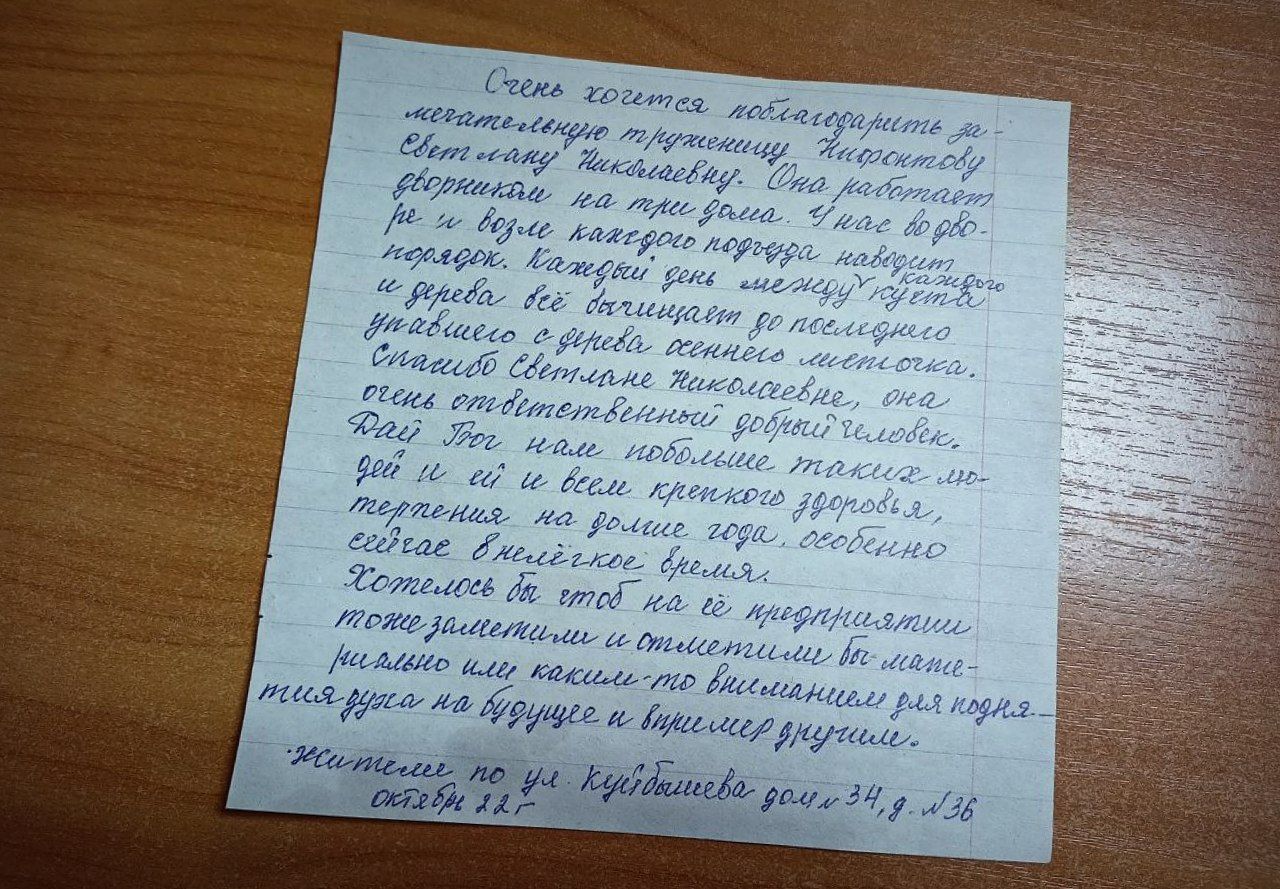 Очень хочется поблагодарить за-
мечательную труженицу Нифонтову
Светлану Николаевну. Она работает
дворником на три дома. У нас во дво-
ре и возле каждого подъезда наводит
порядок. Каждый день между каждого куста
и дерева всё вычищает до последнего
упавшего с дерева осеннего листочка.
Спасибо Светлане Николаевне, она
очень ответственный добрый человек.
Дай Бог нам побольше таких лю-
дей и ей и всем крепкого здоровья,
терпения на долгие года, особенно
сейчас в нелёгкое время.
Хотелось бы чтоб на её предприятии
тоже заметили и отметили бы мате-
риально или каким-то вниманием для подня-
тия духа на будущее и в пример другим.
Жители по ул. Куйбышева дом № 34, д. № 36
октябрь 22 г